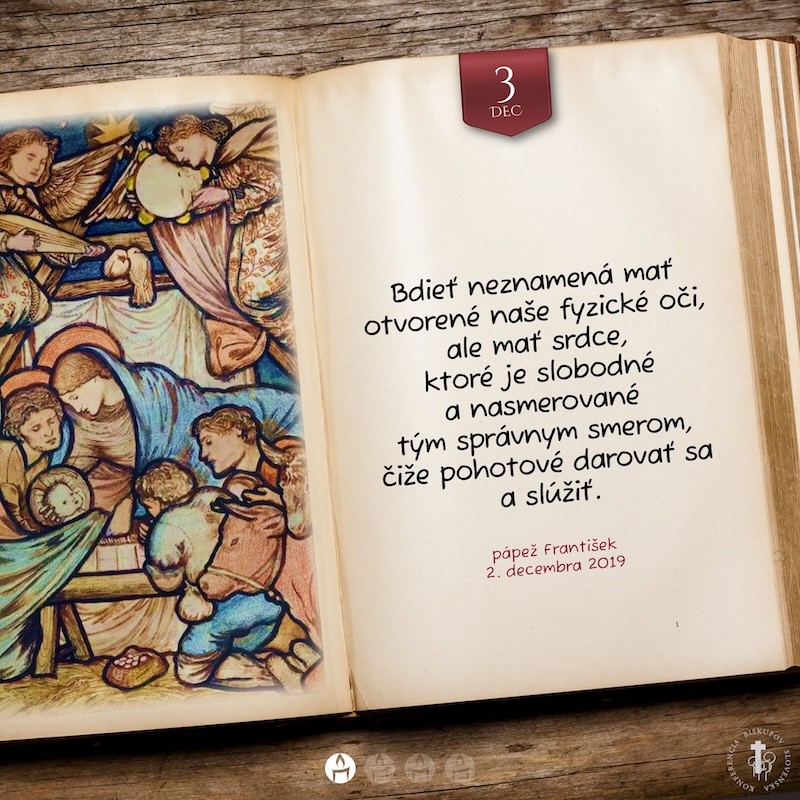 3
DEC
Bdieť neznamená mať
otvorené naše fyzické oči,
ale mať srdce,
ktoré je slobodné
a nasmerované
tým správnym smerom,
čiže pohotové darovať sa
a slúžiť.
pápež František
2. decembra 2019
1
KONFERENCIA BISKUPOV SLOVENSKA